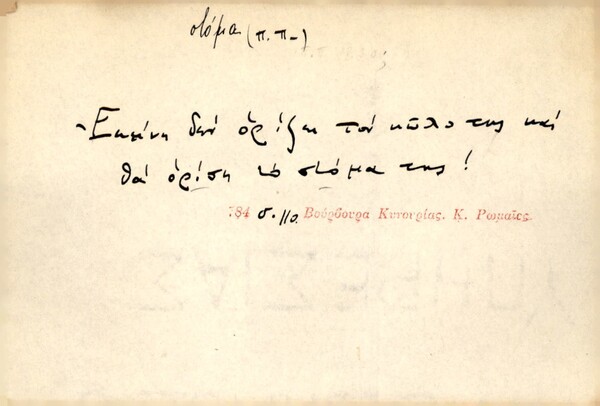 στόμα (π.π-)
~ Εκείνη δεν ορίζει τον κώλο της και
θα ορίση το στόμα της!
784 σ. 110. Βούρβουρα Κυνουρίας. Κ. Ρωμαῖος.